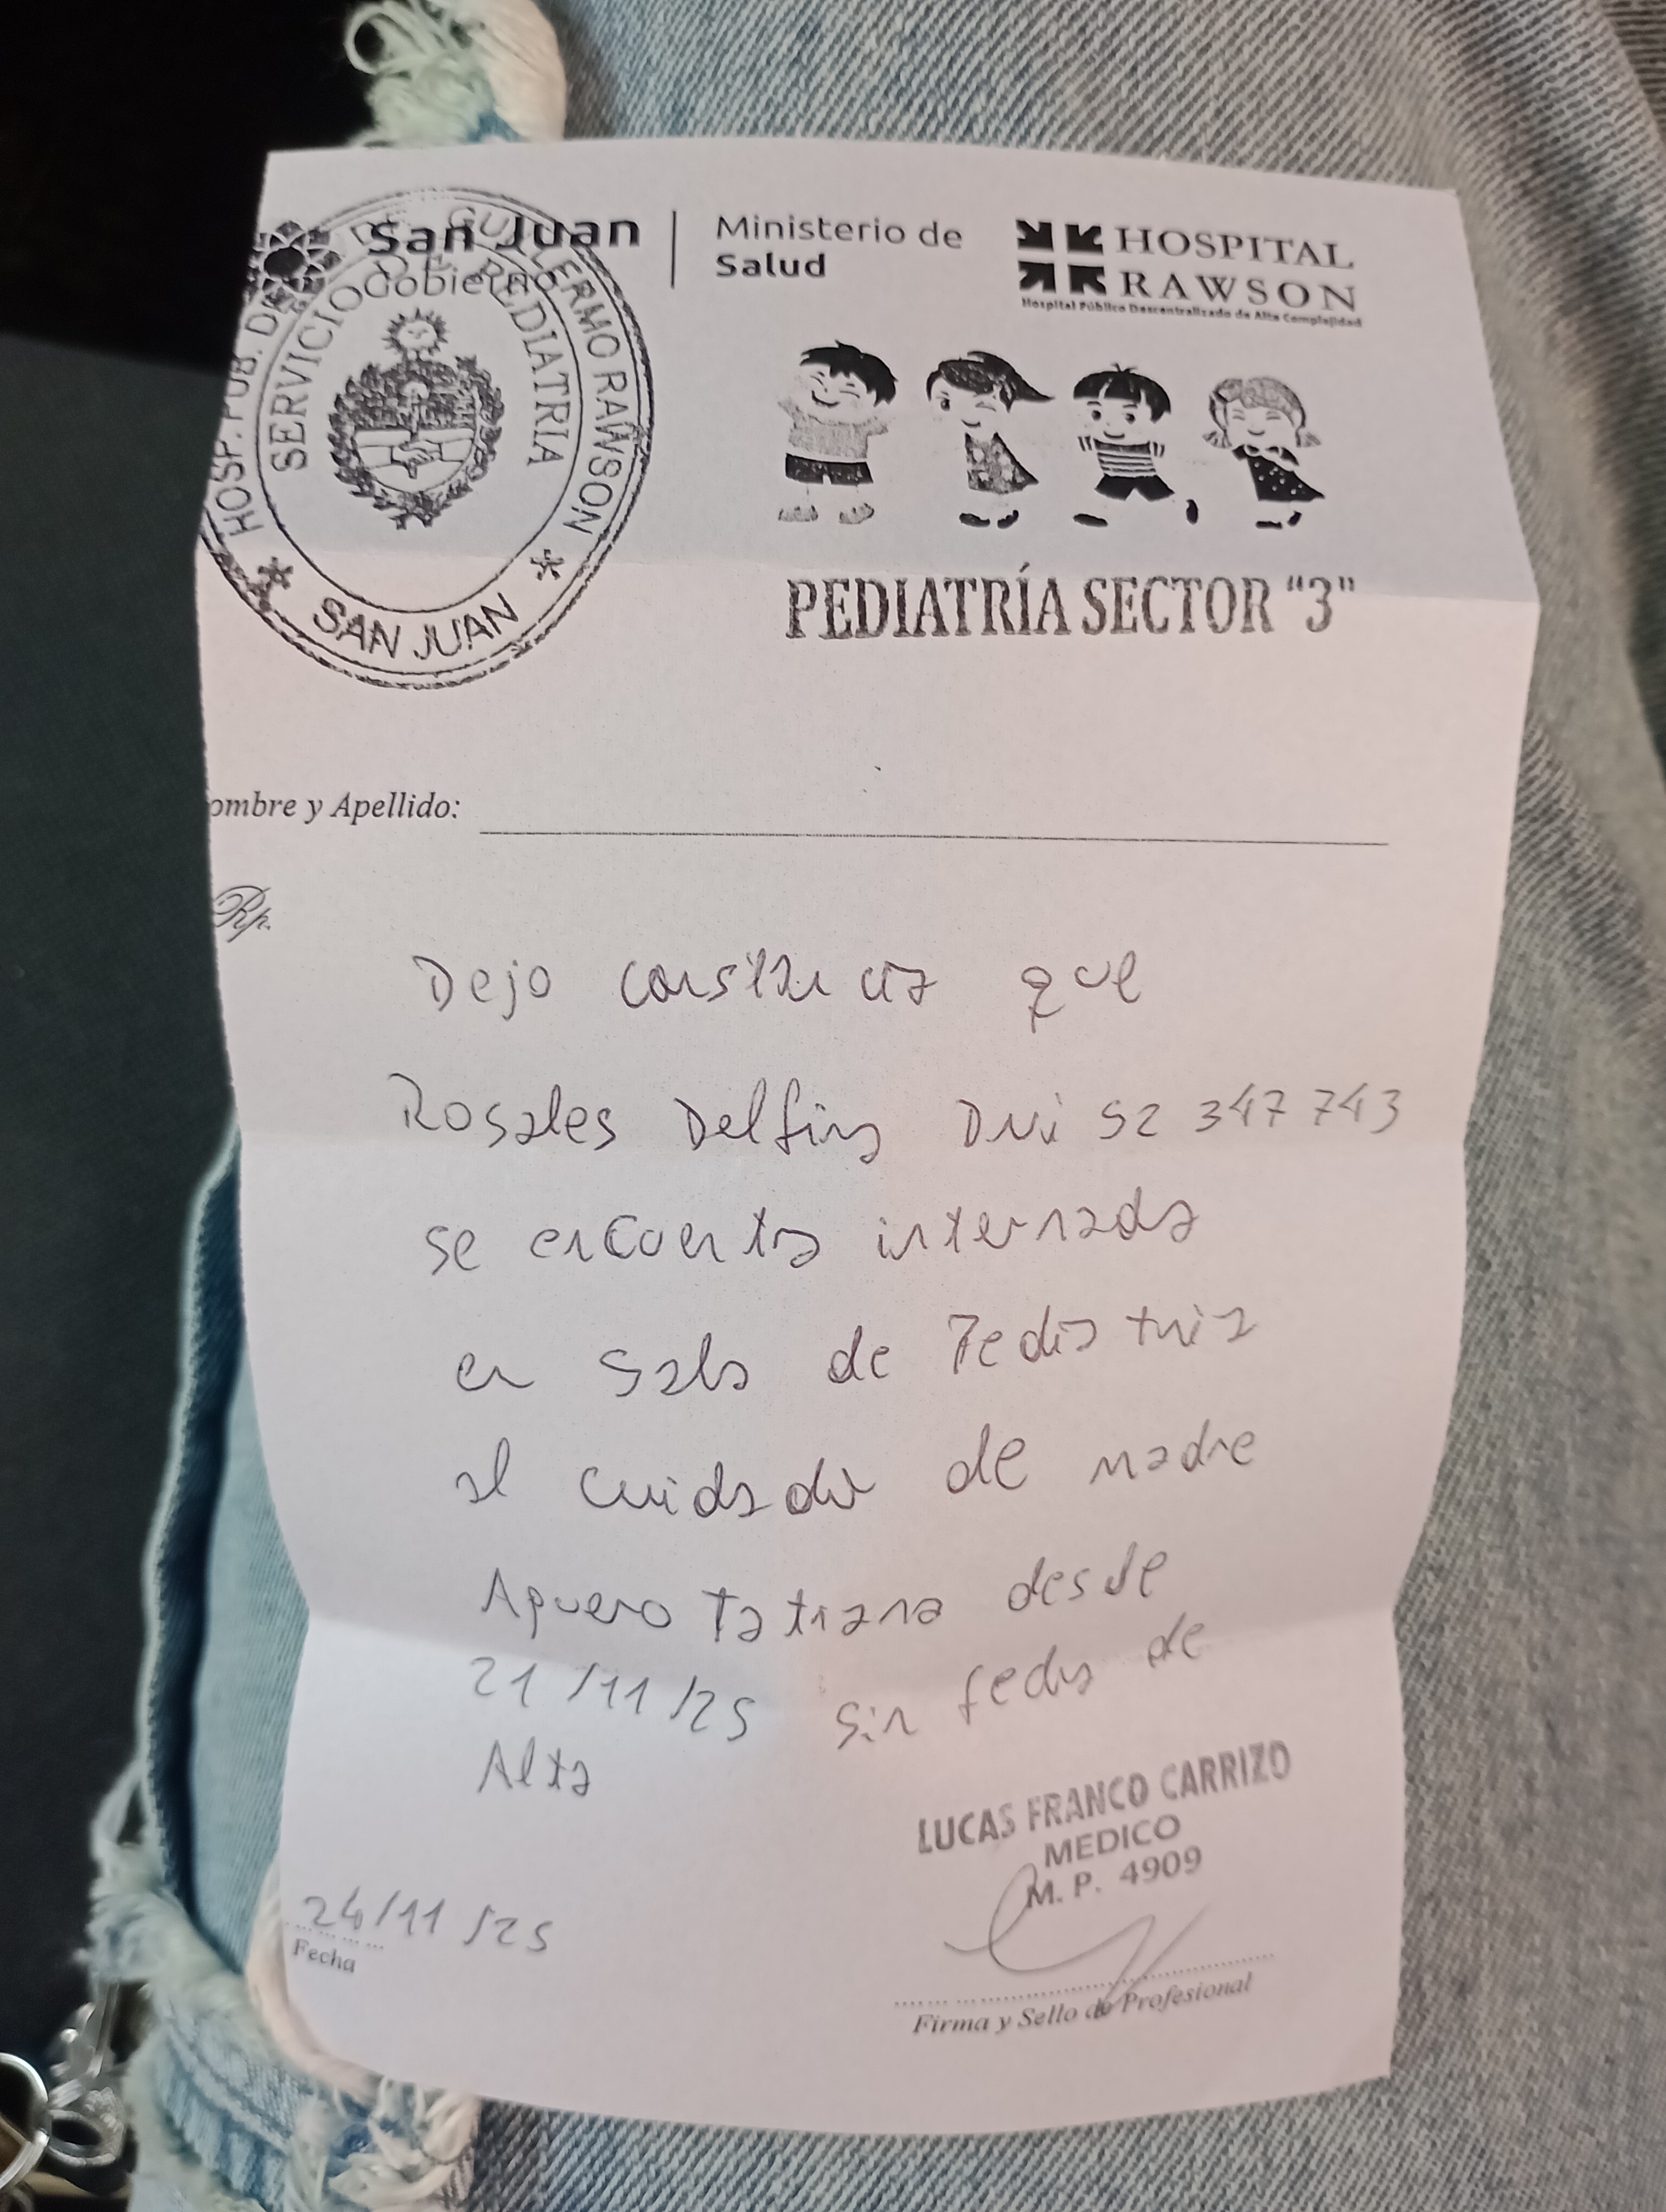 San Juan
Gobierno
Ministerio de
Salud
HOSPITAL
RAWSON
Hospital Público Descentralizado de Alta Complejidad
HOSP. PUB. DR. GUILLERMO RAWSON
SERVICIO DE PEDIATRIA
* SAN JUAN *
PEDIATRÍA SECTOR "3"
ombre y Apellido:
Rp.
Dejo constancia que
Rosales Delfina DNI 52 347 743
se encuentra internada
en Sala de Pediatria
al cuidado de madre
Aguero Tatiana desde
21/11/25 sin fecha de
Alta
LUCAS FRANCO CARRIZO
MEDICO
M. P. 4909
24/11/25
Fecha
Firma y Sello de Profesional